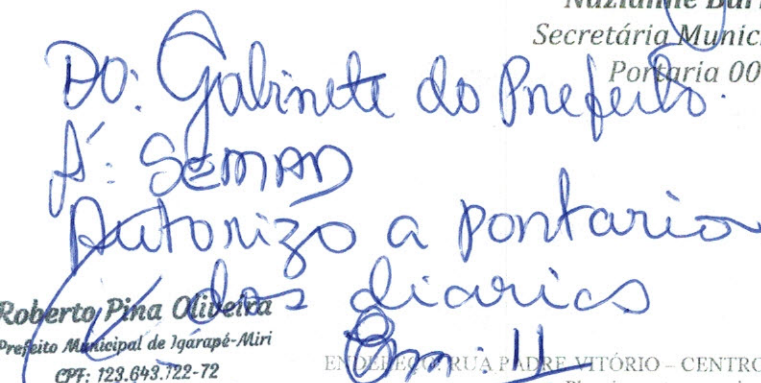 Secretária Munic
Portaria 00
DO: Gabinete do Prefeito.
À: SEMAD
Autorizo a portaria
das diarias
Roberto Pina Oliveira
Prefeito Municipal de Igarapé-Miri
CPF: 123.643.722-72
Em: 11
ENDEREÇO: RUA PADRE VITÓRIO – CENTRO